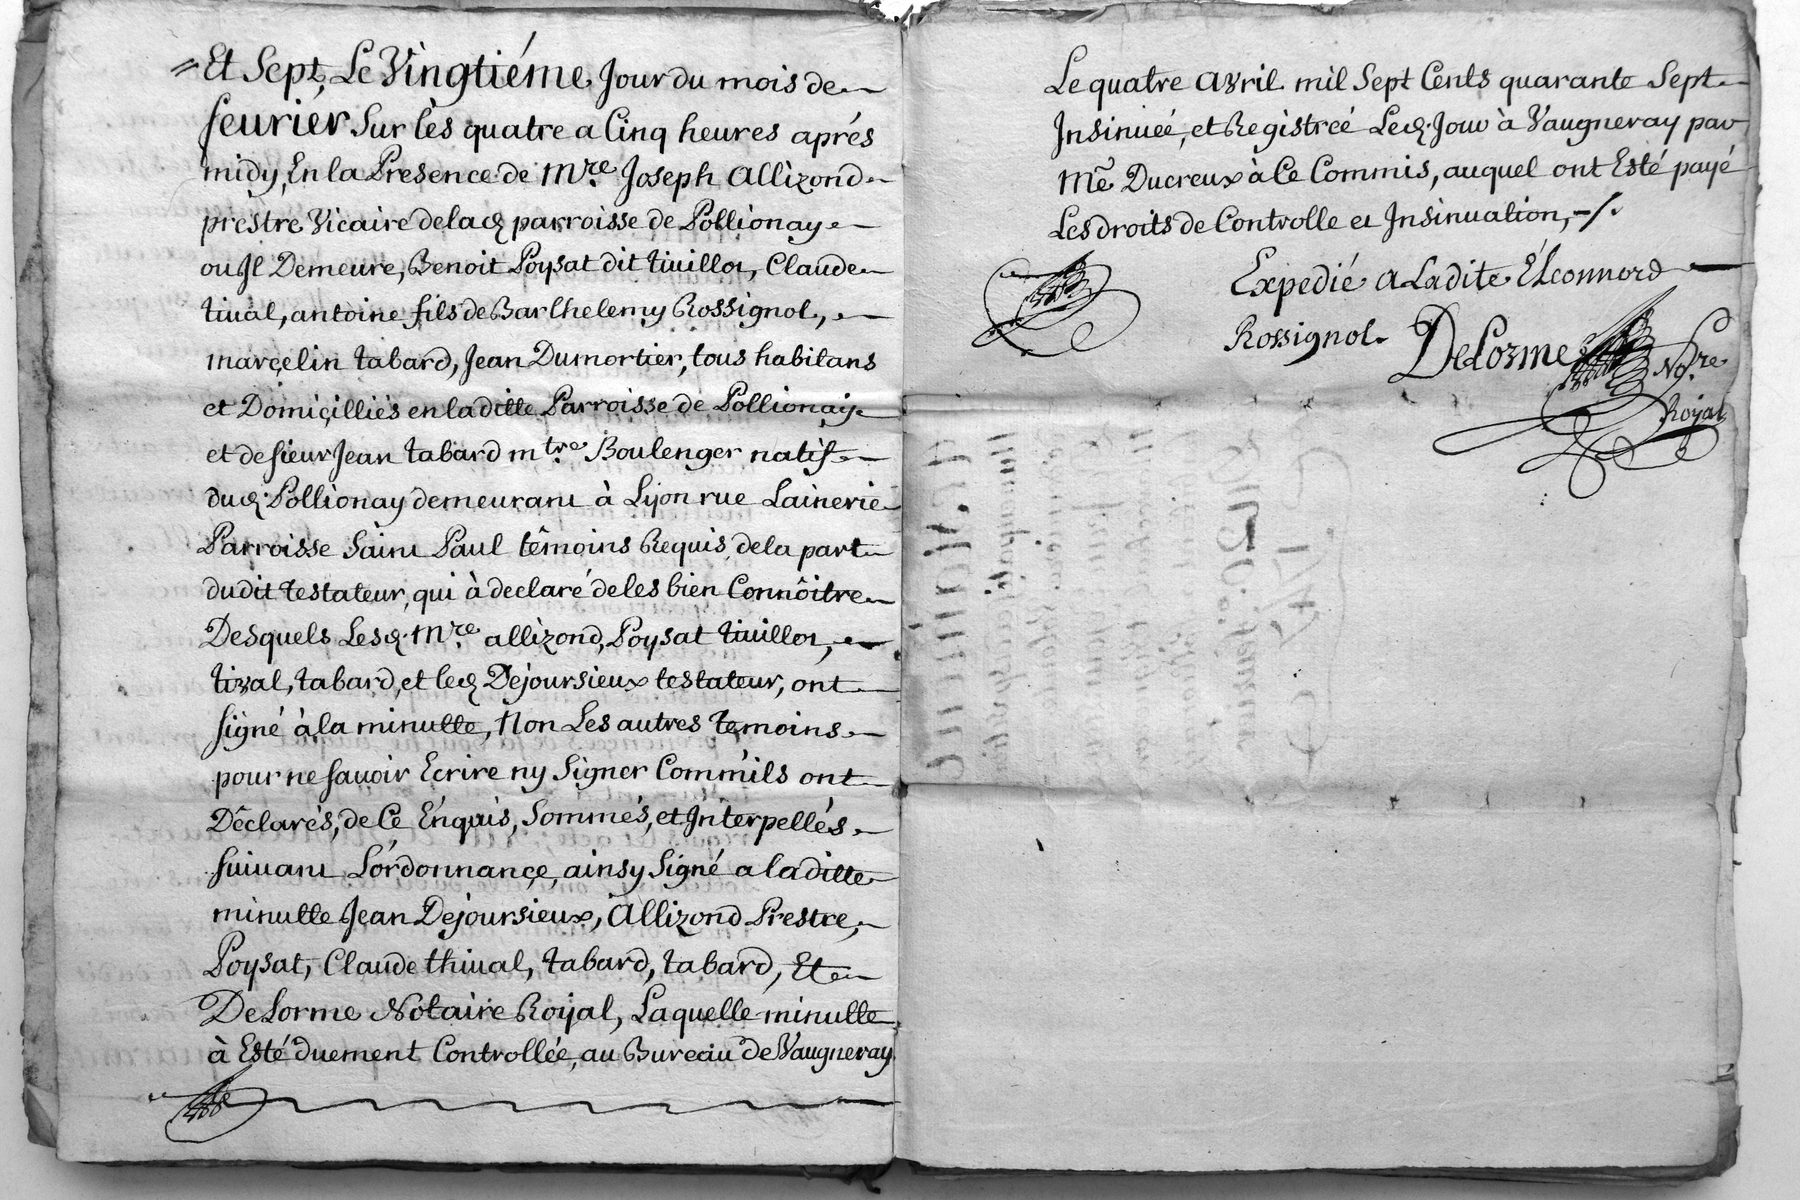 Et Sept, Le Vingtiéme Jour du mois de
feurier Sur lès quatre a Cinq heures aprés
midy, En la Presence de Mre. Joseph Allizond
prestre Vicaire de lad. parroisse de Pollionay
ou Jl Demeure, Benoit Poysat dit tiuillon, Claude
tiual, antoine fils de Barthelemy Rossignol,
marçelin tabard, Jean Dumortier, tous habitans
et Domiçilliés en laditte Parroisse de Pollionay
et de sieur Jean tabard mtre. Boulenger natif
dud. Pollionay demeurant à Lyon rue Lainerie
Parroisse Saint Paul têmoins Requis de la part
dudit testateur, qui à declaré de les bien Connôitre
Desquels Lesd. Mre. allizond, Poysat tiuillon,
tival, tabard, et led. Dejoursieux testateur, ont
signé à la minutte, Non Les autres temoins
pour ne sauoir Ecrire ny Signer Comm'ils ont
Dêclarés, de Ce Enquis, Sommés, et Interpellés
suiuant L'ordonnançe, ainsy Signé a laditte
minutte Jean Dejoursieux, Allizond Prestre,
Poysat, Claude thiual, tabard, tabard, Et
DeLorme Notaire Royal, Laquelle minutte
à Esté duement Controllée, au Bureau de Vaugneray
Le quatre Avril mil Sept Cents quarante Sept
Insinueé, et Registreé Led. Jour à Vaugneray par
Me Ducreux à Ce Commis, auquel ont Esté payé
Les droits de Controlle et Insinuation, -/.
Expedié A Ladite Eléonnord
Rossignol.
DeLorme Nore.
Royal